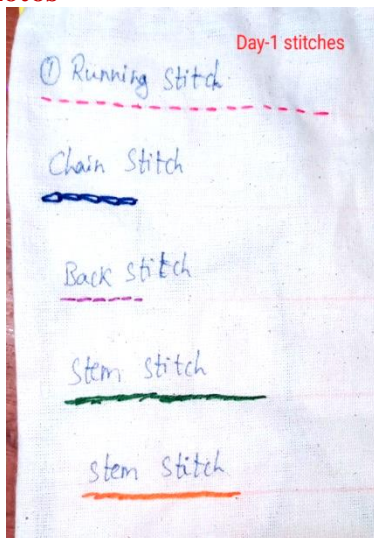 Day-1 stitches
① Running Stitch
Chain Stitch
Back Stitch
Stem Stitch
Stem Stitch